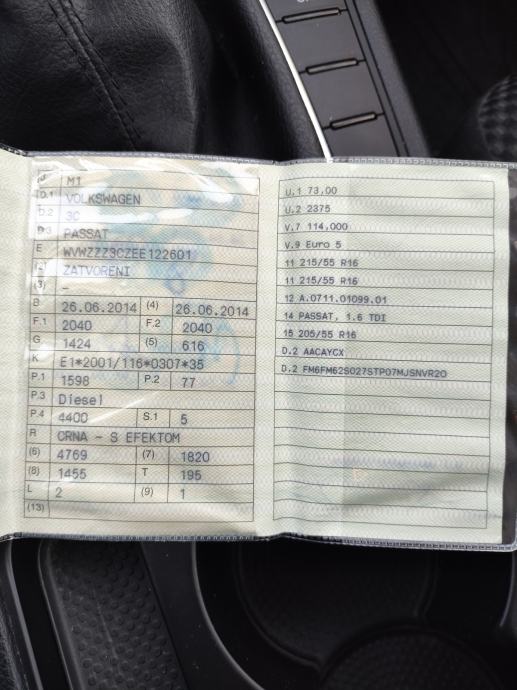 J M1
D.1 VOLKSWAGEN
D.2 3C
D.3 PASSAT
E WVWZZZ3CZEE122601
(2) ZATVORENI
(3) –
B 26.06.2014 (4) 26.06.2014
F.1 2040 F.2 2040
G 1424 (5) 616
K E1*2001/116*0307*35
P.1 1598 P.2 77
P.3 Diesel
P.4 4400 S.1 5
R CRNA - S EFEKTOM
(6) 4769 (7) 1820
(8) 1455 T 195
L 2 (9) 1
(13)
U.1 73,00
U.2 2375
V.7 114,000
V.9 Euro 5
11 215/55 R16
11 215/55 R16
12 A.0711.01099.01
14 PASSAT, 1.6 TDI
15 205/55 R16
D.2 AACAYCX
D.2 FM6FM62S027STP07MJSNVR2O